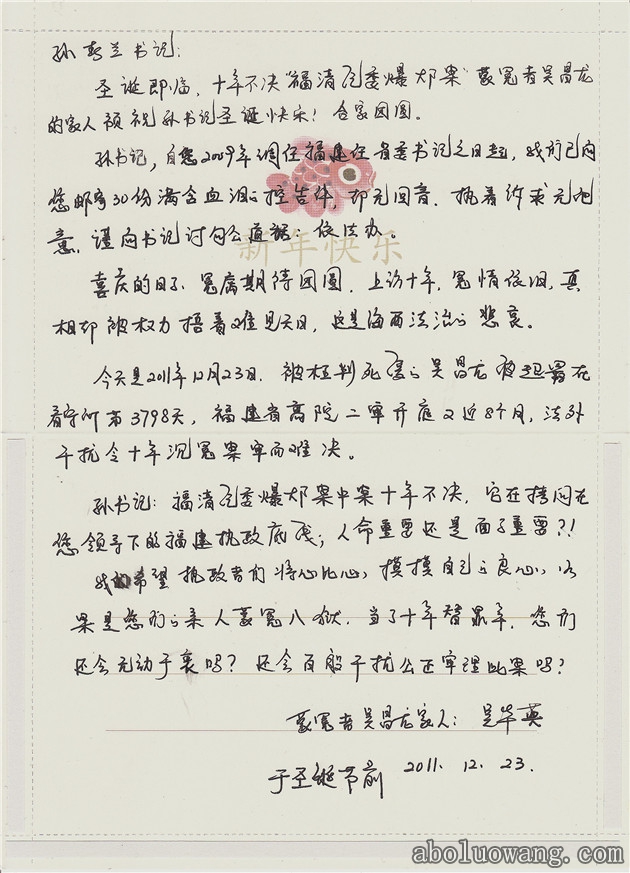 孙春兰书记：
圣诞即临，十年不决“福清纪委爆炸案”蒙冤者吴昌龙
的家人预祝孙书记圣诞快乐！合家团圆。
孙书记，自您2009年调任福建任省委书记之日起，我前已向
您邮寄30份满含血泪的控告件，却无回音。执着许求无恶
意，谨向书记讨句公道话：依法办。
新年快乐
喜庆的日子，冤属期待团圆，上访十年，冤情依旧，真
相却被权力捂着难见天日，这是海西法治的悲哀。
今天是2011年12月23日，被枉判死缓的吴昌龙被超羁在
看守所第3798天，福建省高院二审开庭又近8个月，法外
干扰令十年沉冤案审而难决。
孙书记：福清纪委爆炸案中案十年不决，它在拷问在
您领导下的福建执政底线：人命重要还是面子重要？！
我希望执政者们将心比心，摸摸自己的良心，如
果是您们的亲人蒙冤入狱，当了十年替罪羊，您们
还会无动于衷吗？还会百般干扰公正审理此案吗？
蒙冤者吴昌龙家人：吴华英
于圣诞节前 2011.12.23.
aboluowang.com